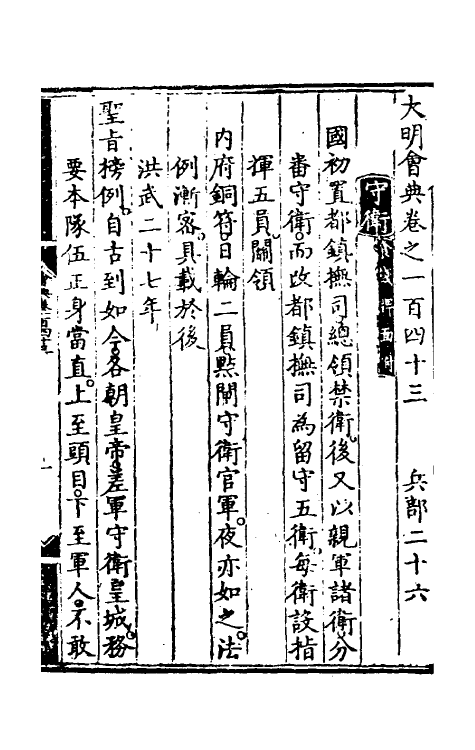 大明會典卷之一百四十三　兵部二十六
守衛
國初置都鎮撫司總領禁衛後又以親軍諸衛分
番守衛而改都鎮撫司為留守五衛每衛設指
揮五員關領
內府銅符日輪二員點閘守衛官軍夜亦如之法
例漸密具載於後
洪武二十七年
聖旨榜例自古到如今各朝皇帝差軍守衛皇城務
要本隊伍正身當直上至頭目下至軍人不敢